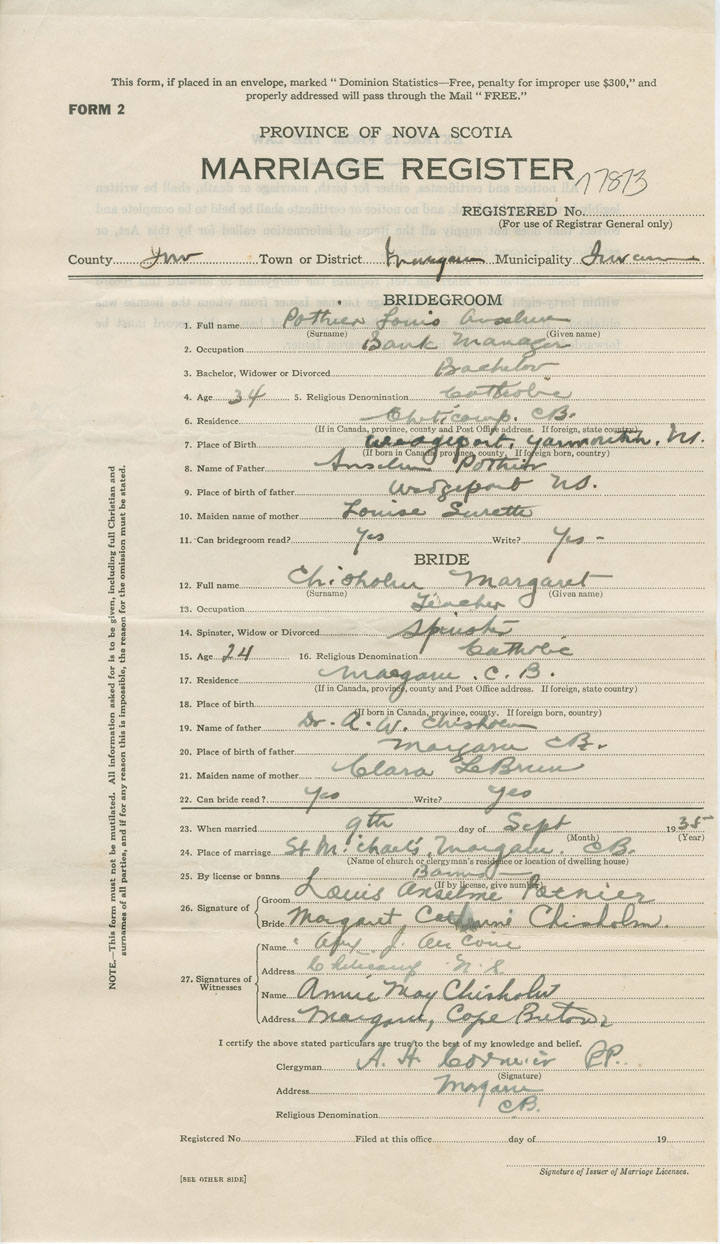 This form, if placed in an envelope, marked " Dominion Statistics—Free, penalty for improper use $300," and
properly addressed will pass through the Mail " FREE."
FORM 2
PROVINCE OF NOVA SCOTIA
MARRIAGE REGISTER
17813
REGISTERED No.
(For use of Registrar General only)
County Inv Town or District Margaree Municipality Inverness
BRIDEGROOM
1. Full name Pothier Louis Anselme
(Surname) (Given name)
2. Occupation Bank Manager
3. Bachelor, Widower or Divorced Bachelor
4. Age 34 5. Religious Denomination Catholic
6. Residence Cheticamp. CB.
(If in Canada, province, county and Post Office address. If foreign, state country)
7. Place of Birth Wedgeport, Yarmouth, N.S.
(If born in Canada, province, county. If foreign born, country)
8. Name of Father Anselm Pothier
9. Place of birth of father Wedgeport NS.
10. Maiden name of mother Louise Surette
11. Can bridegroom read? Yes Write? Yes -
BRIDE
12. Full name Chisholm Margaret
(Surname) (Given name)
13. Occupation Teacher
14. Spinster, Widow or Divorced Spinster
15. Age 24 16. Religious Denomination Catholic
17. Residence Margaree. C. B.
(If in Canada, province, county and Post Office address. If foreign, state country)
18. Place of birth
(If born in Canada, province, county. If foreign born, country)
19. Name of father Dr. A. W. Chisholm
20. Place of birth of father Margaree CB.
21. Maiden name of mother Clara LeBrun
22. Can bride read? Yes Write? Yes
23. When married 9th day of Sept 1935
(Month) (Year)
24. Place of marriage St Michael's, Margaree. CB.
(Name of church or clergyman's residence or location of dwelling house)
25. By license or banns Banns
(If by license, give number)
26. Signature of
Groom Louis Anselme Pothier
Bride Margaret Catherine Chisholm.
27. Signatures of Witnesses
Name J.
Address Cheticamp N.S.
Name Annie May Chisholm
Address Margaree, Cape Breton
I certify the above stated particulars are true to the best of my knowledge and belief.
Clergyman A. H. Cormier P.P.
(Signature)
Address Margaree
CB.
Religious Denomination
Registered No. Filed at this office day of 19
Signature of Issuer of Marriage Licenses.
[SEE OTHER SIDE]
NOTE.—This form must not be mutilated. All information asked for is to be given, including full Christian and
surnames of all parties, and if for any reason this is impossible, the reason for the omission must be stated.